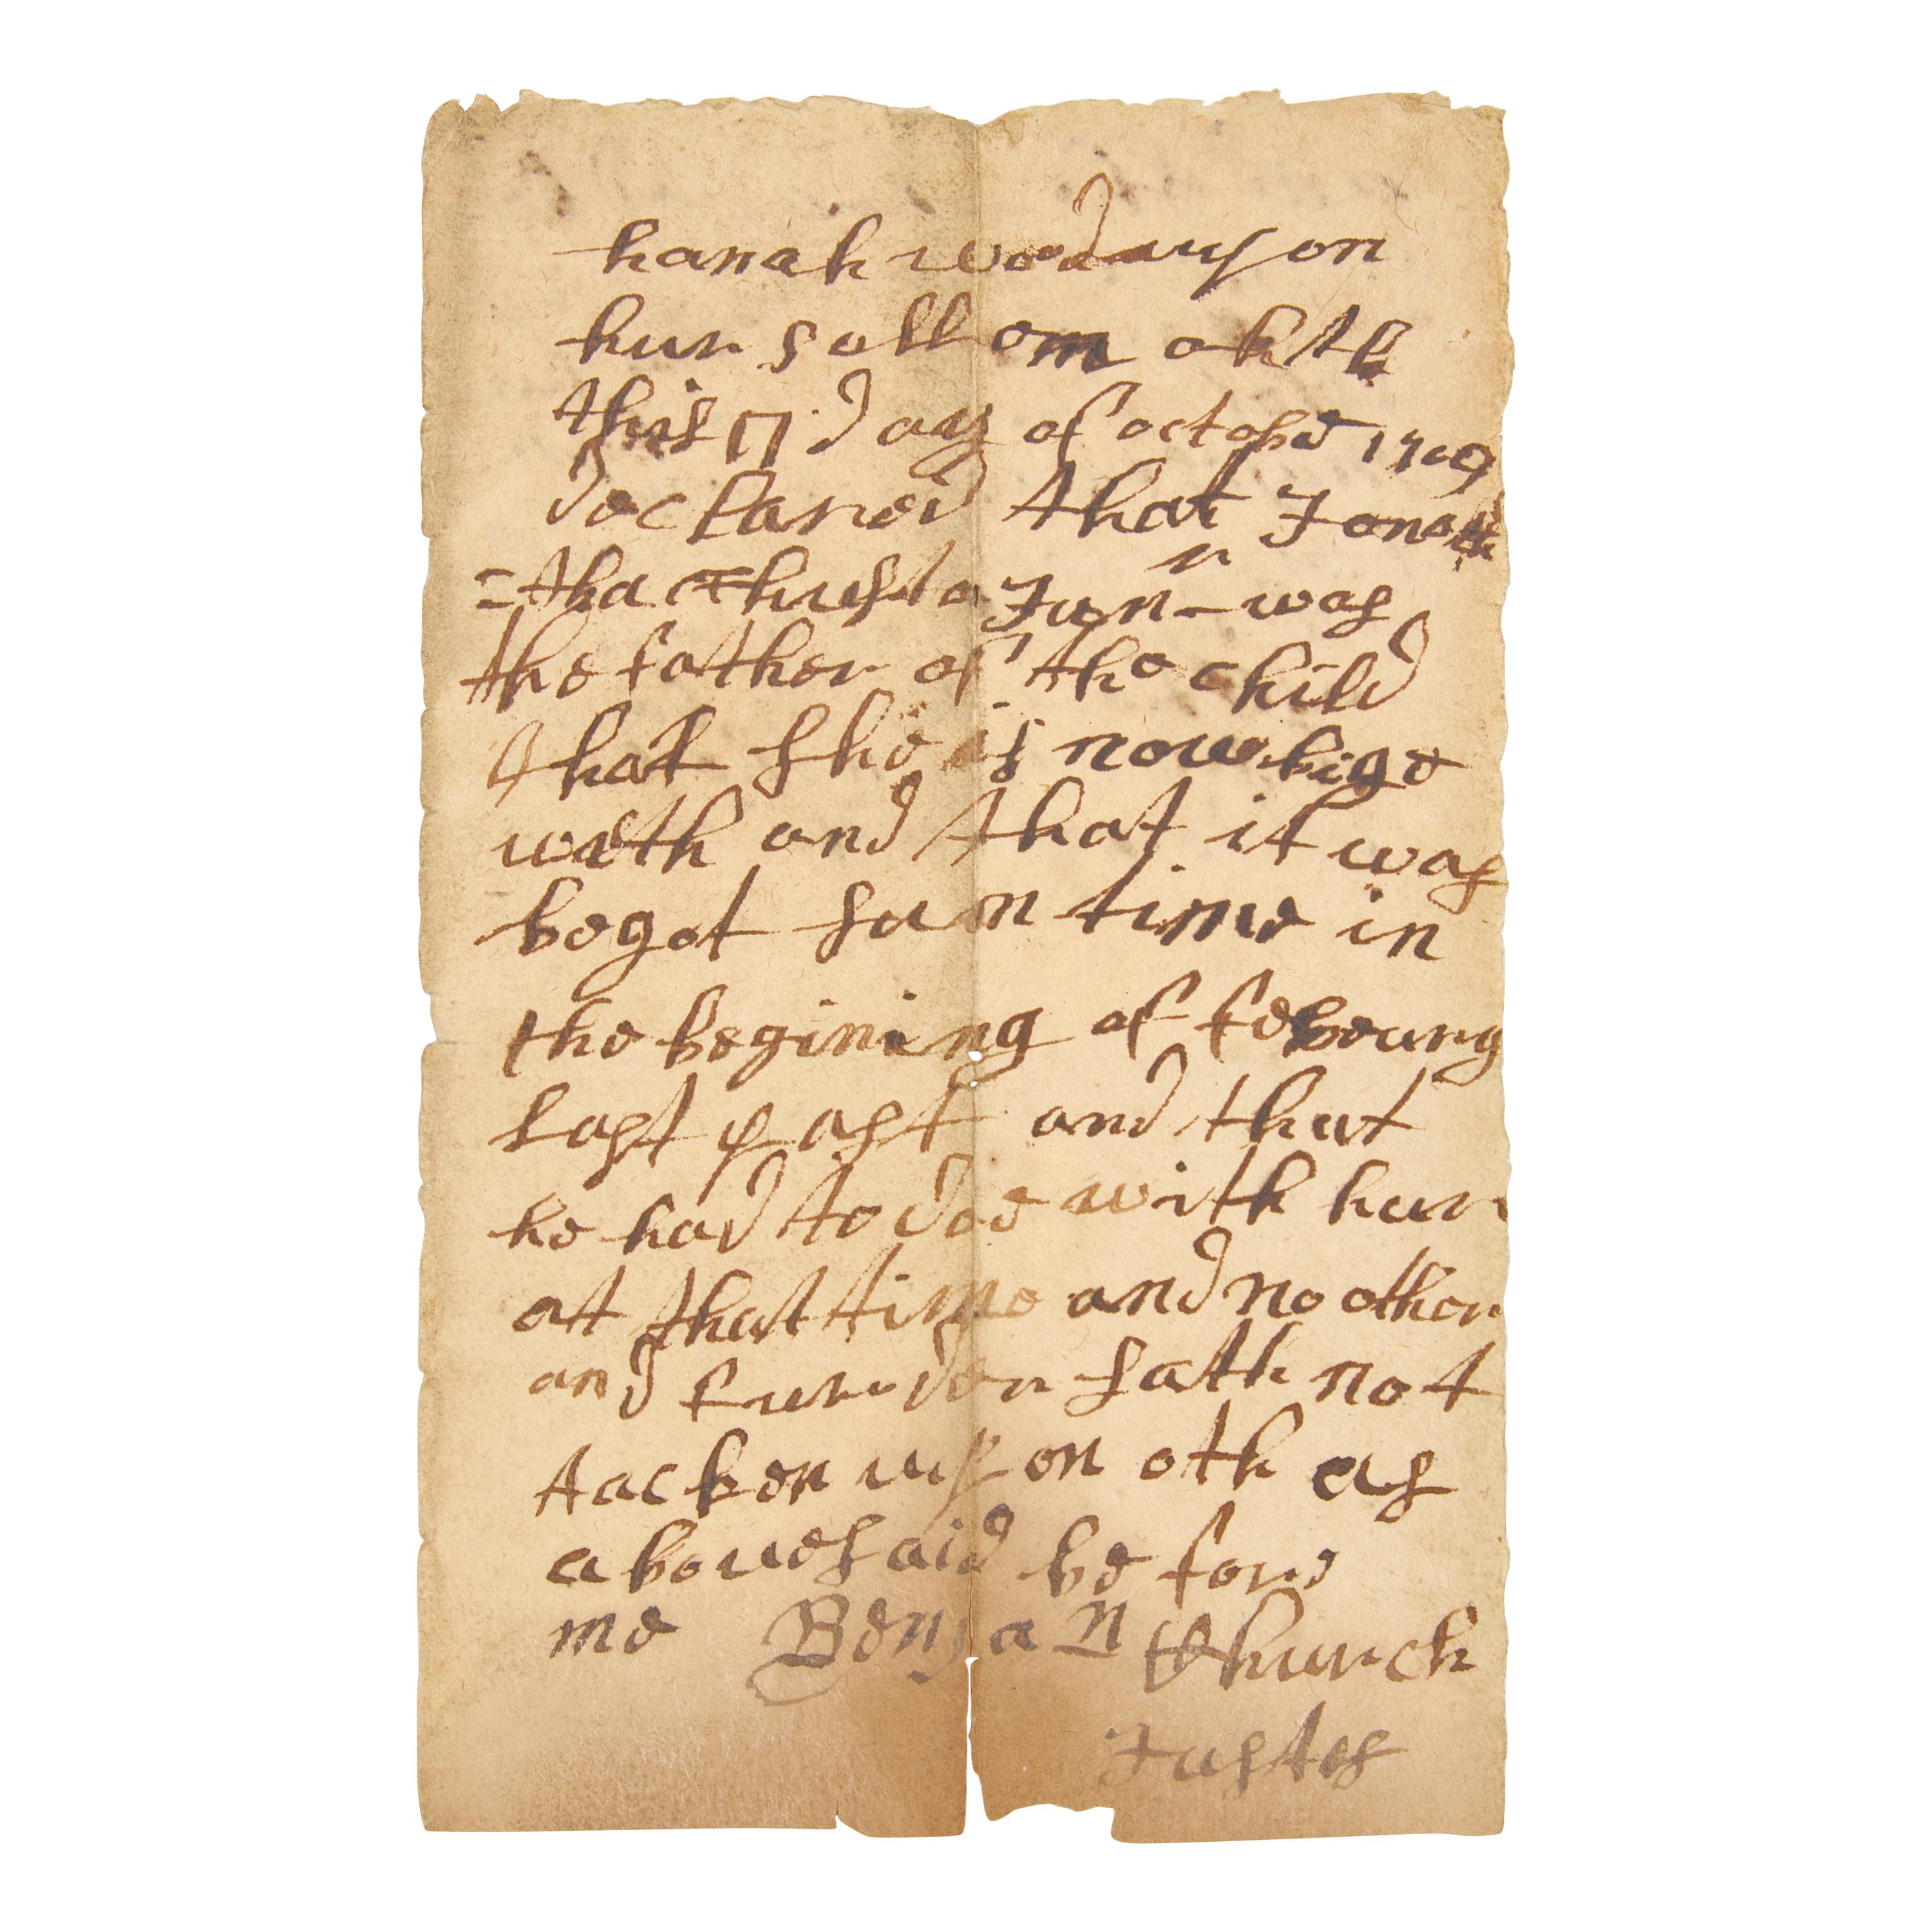 hanah wood upon
hur sollom okth
this 17 day of octobd 1709
declared that Jona
=tha Thusto Jun r was
the father of the child
that she is now bige
with and that it was
begot sum time in
the begining of febeuury
last past and that
he had to doe with hur
at that time and no other
and furder sath not
tacken upon oth as
abouesaid be fore
me Benjan Church
Justes